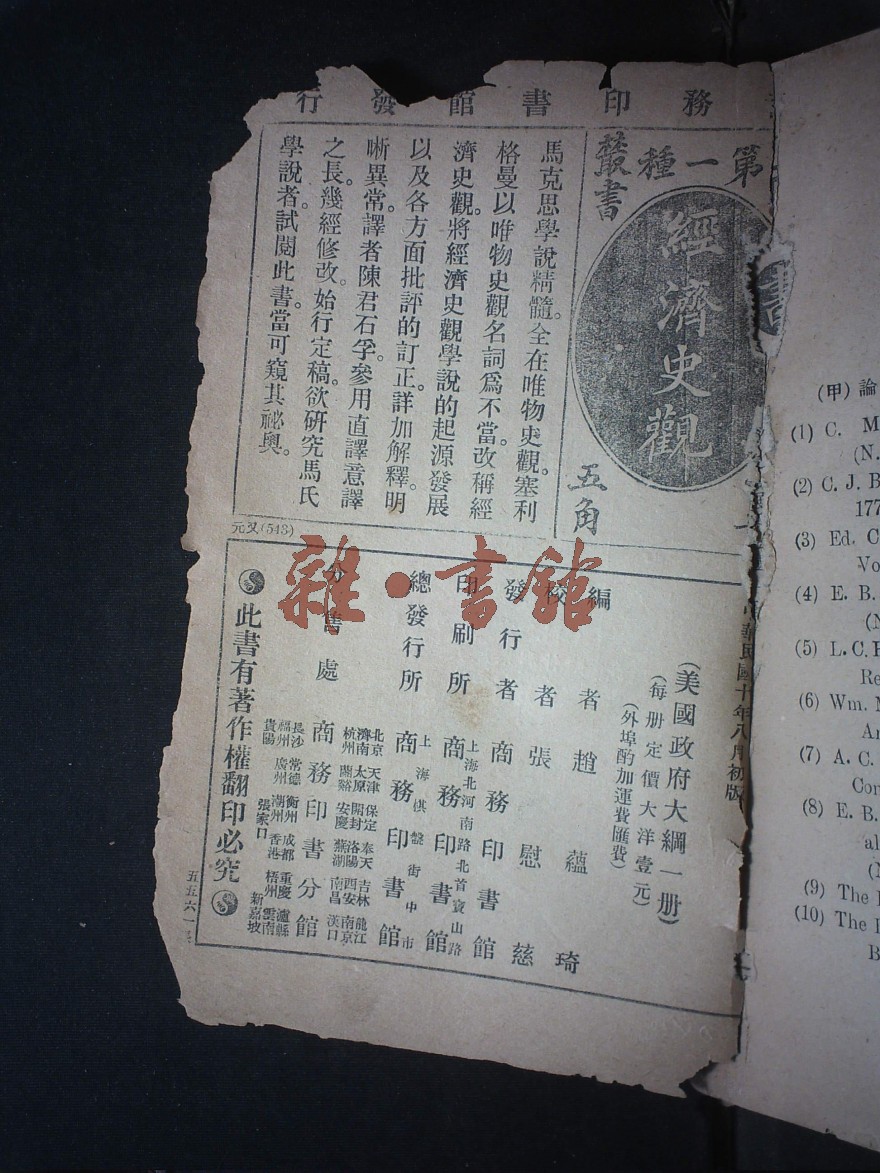 務印書館發行
第一種
叢書
經濟史觀
五角
馬克思學說精髓。全在唯物史觀。塞利
格曼以唯物史觀名詞爲不當。改稱經
濟史觀。將經濟史觀學說的起源發展
以及各方面批評的訂正。詳加解釋。明
晰異常。譯者陳君石孚。參用直譯意譯
之長。幾經修改。始行定稿。欲研究馬氏
學說者。試閱此書。當可窺其祕奧。
元又(543)
華民國十年八月初版
(美國政府大綱一册)
(每册定價大洋壹元)
(外埠酌加運費匯費)
編者 趙蘊琦
校者 張慰慈
發行者 商務印書館
印刷所 上海北河南路北首寶山路 商務印書館
總發行所 上海棋盤街中市 商務印書館
分售處 商務印書分館
北京 天津 保定 奉天 吉林 龍江
濟南 太原 開封 洛陽 西安 南京
杭州 蘭谿 安慶 蕪湖 南昌 漢口
長沙 常德 衡州 成都 重慶 瀘縣
福州 廣州 潮州 香港 梧州 雲南
貴陽 張家口 新嘉坡
此書有著作權翻印必究
五五六一
雜·書館
(甲) 論
(1) C. M
(N.
(2) C. J. B
177
(3) Ed. C
Vo
(4) E. B.
(N
(5) L. C. F
Re
(6) Wm. M
An
(7) A. C.
Con
(8) E. B.
al
(N
(9) The
(10) The
B